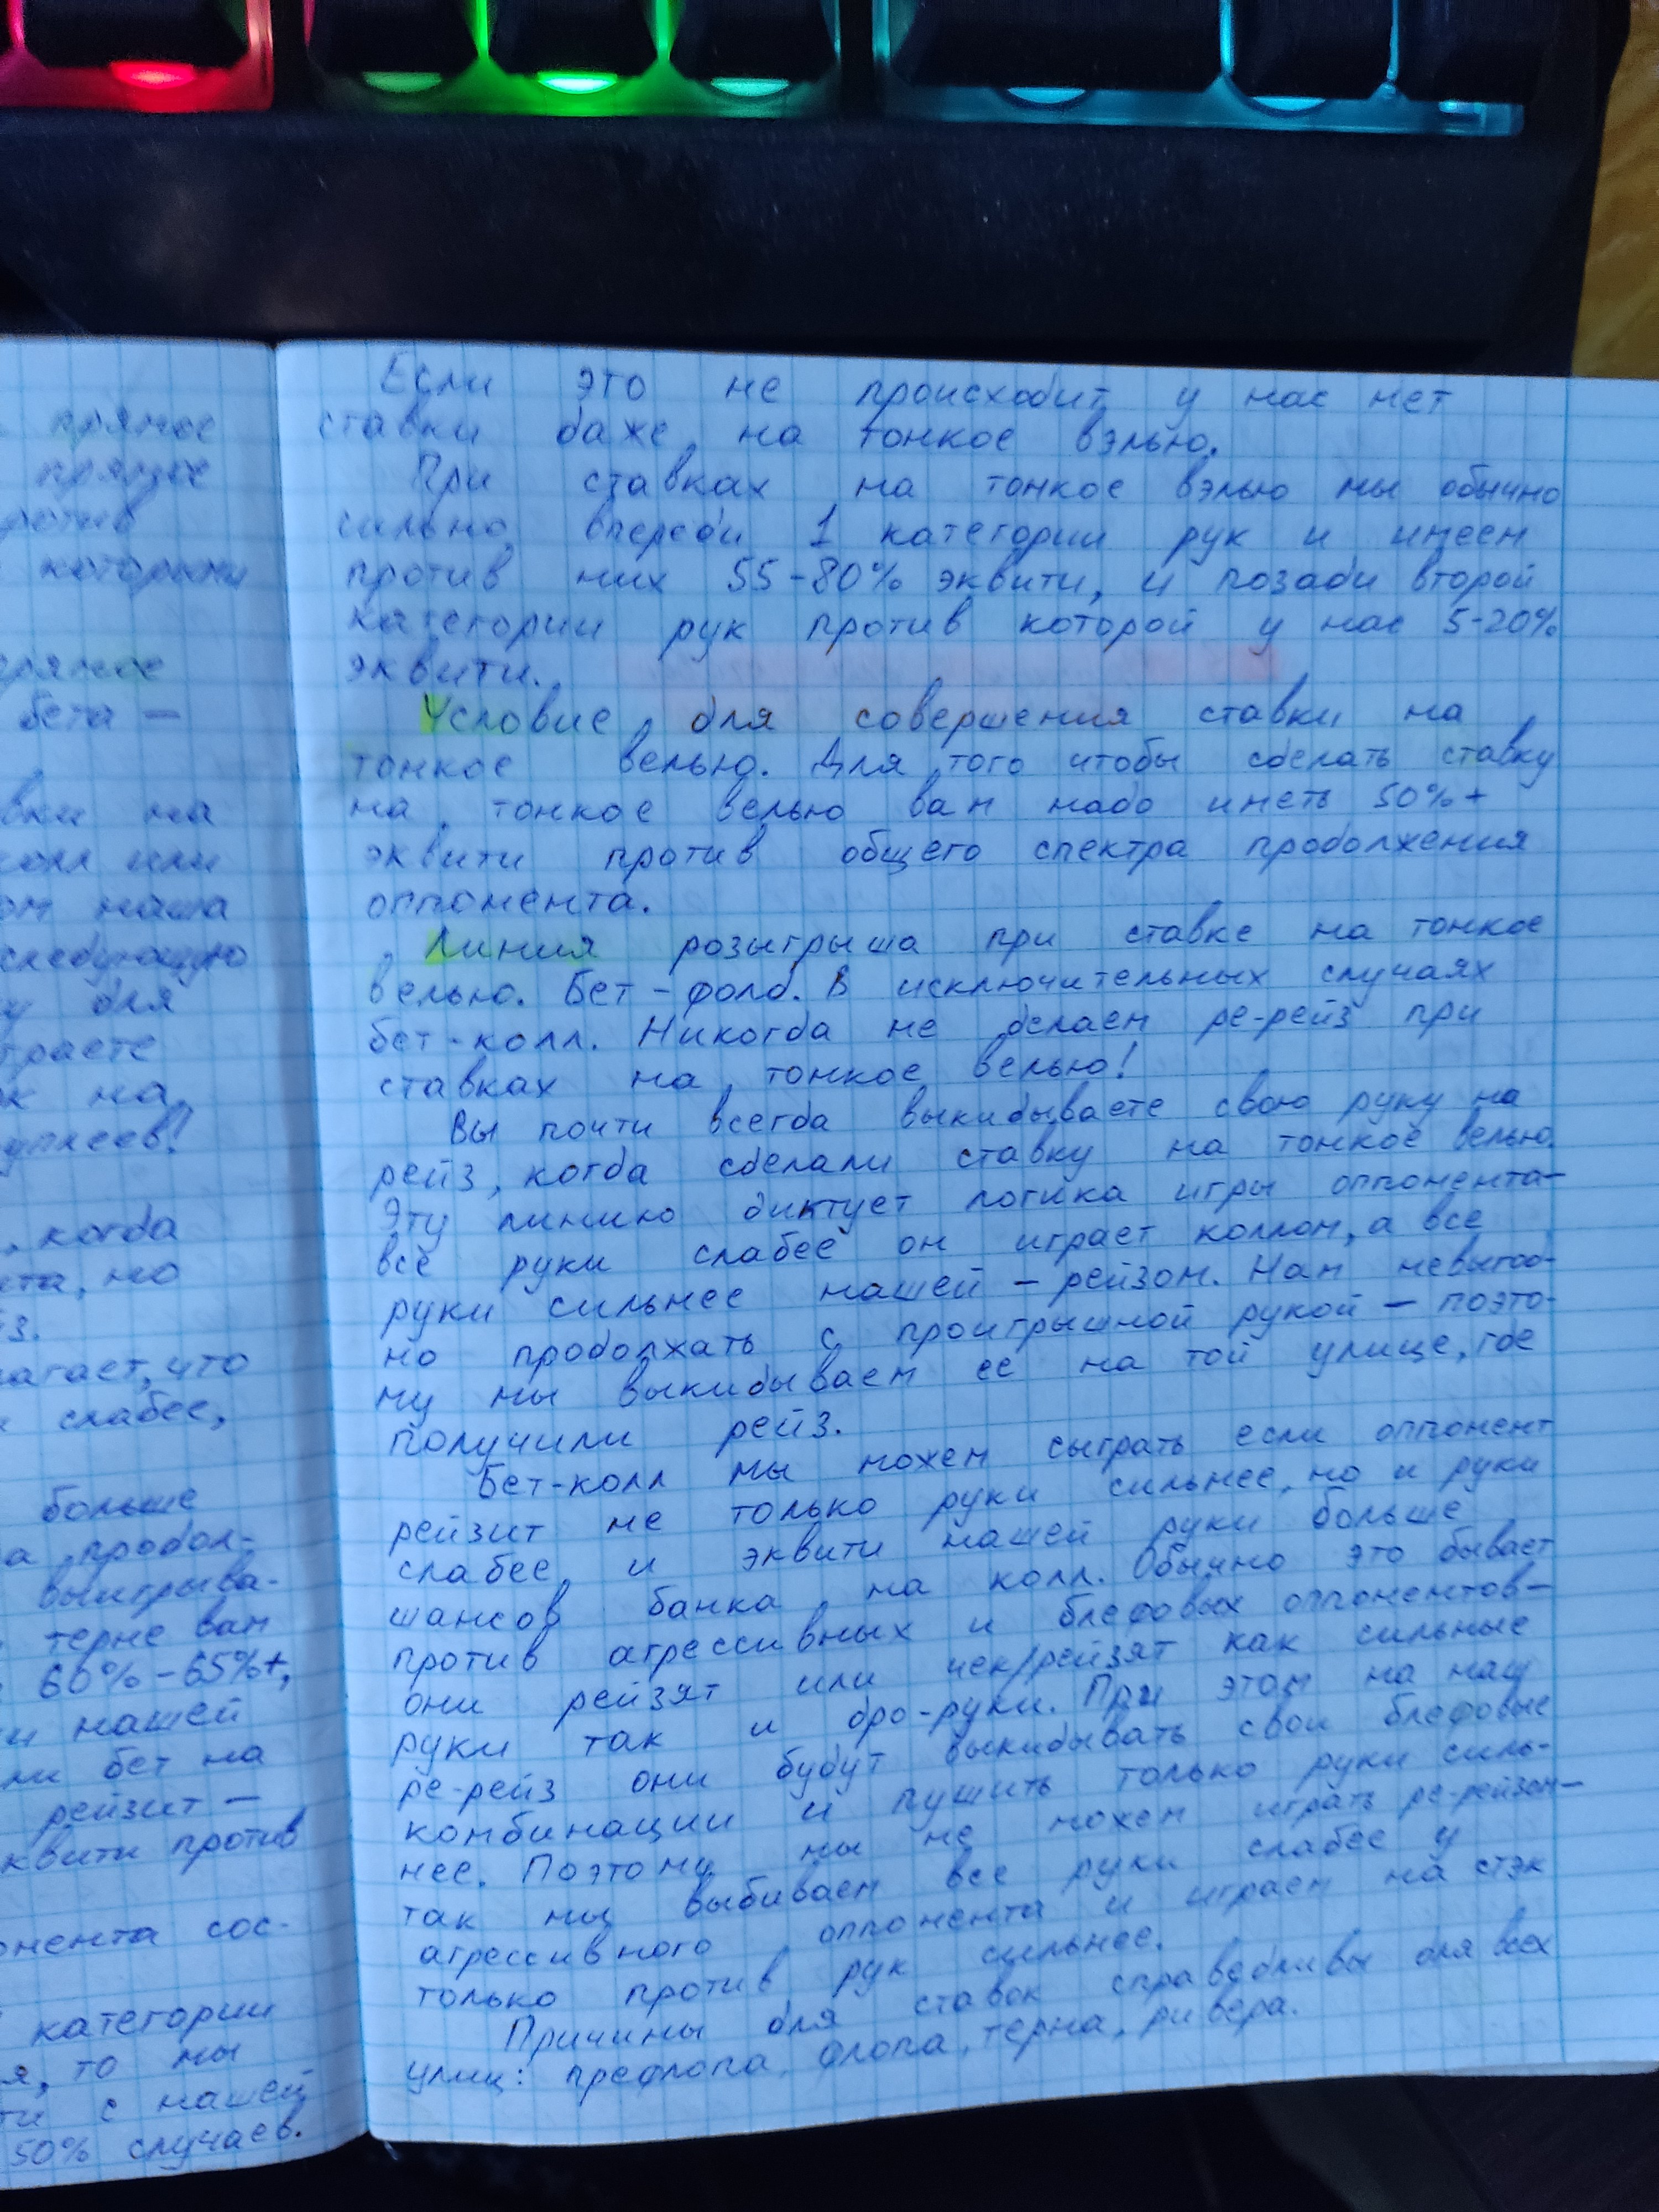 прямое
прямое
против
которыми
прямое
бета —
вки на
колл или
ом наша
следующую
у для
граете
к на
уплеев!
, когда
та, но
з.
лагает, что
и слабее,
больше
а продол-
выигрыва-
терне вам
60% - 65%+,
и нашей
ли бет на
рейзит —
квити против
онента сос-
категории
я, то мы
ти с нашей
50% случаев.
Если это не происходит у нас нет
ставки даже на тонкое вэлью.
При ставках на тонкое вэлью мы обычно
сильно впереди 1 категории рук и имеем
против них 55-80% эквити, и позади второй
категории рук против которой у нас 5-20%
эквити.
Условие для совершения ставки на
тонкое велью. Для того чтобы сделать ставку
на тонкое велью вам надо иметь 50%+
эквити против общего спектра продолжения
оппонента.
Линия розыгрыша при ставке на тонкое
велью. Бет-фолд. В исключительных случаях
бет-колл. Никогда не делаем ре-рейз при
ставках на тонкое велью!
Вы почти всегда выкидываете свою руку на
рейз, когда сделали ставку на тонкое велью.
Эту линию диктует логика игры оппонента-
все руки слабее он играет коллом, а все
руки сильнее нашей - рейзом. Нам невыгод-
но продолжать с проигрышной рукой - поэто-
му мы выкидываем ее на той улице, где
получили рейз.
Бет-колл мы можем сыграть если оппонент
рейзит не только руки сильнее, но и руки
слабее и эквити нашей руки больше
шансов банка на колл. Обычно это бывает
против агрессивных и блефовых оппонентов-
они рейзят или чек/рейзят как сильные
руки так и дро-руки. При этом на наш
ре-рейз они будут выкидывать свои блефовые
комбинации и пушить только руки силь-
нее. Поэтому мы не можем играть ре-рейзом-
так мы выбиваем все руки слабее у
агрессивного оппонента и играем на стэк
только против рук сильнее.
Причины для ставок справедливы для всех
улиц: префлопа, флопа, терна, ривера.